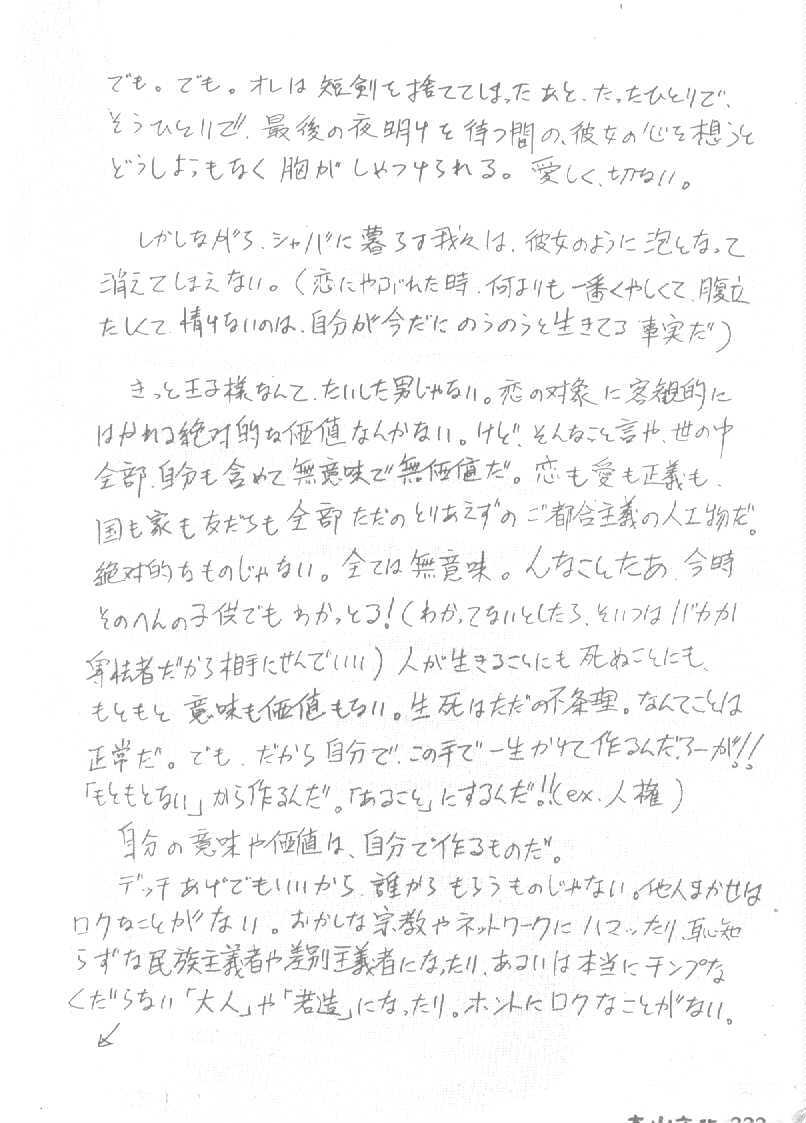 でも。でも。オレは短剣を捨ててしまったあと、たったひとりで、
そうひとりで、最後の夜明けを待つ間の、彼女の心を想うと
どうしようもなく胸がしめつけられる。愛しく、切ない。
しかしながら、シャバに暮らす我々は、彼女のように泡となって
消えてしまえない。(恋にやぶれた時、何よりも一番くやしくて、腹立
たしくて、情けないのは、自分が今だにのうのうと生きてる事実だ)
きっと王子様なんて、たいした男じゃない。恋の対象に客観的に
はかれる絶対的な価値なんかない。けど、そんなこと言や、世の中
全部、自分も含めて無意味で無価値だ。恋も愛も正義も、
国も家も友だちも全部ただのとりあえずのご都合主義の人工物だ。
絶対的なものじゃない。全ては無意味。んなこたあ、今時
そのへんの子供でもわかっとる!(わかってないとしたら、そいつはバカか
卑怯者だから相手にせんでいい)人が生きることにも死ぬことにも、
もともと意味も価値もない。生死はただの不条理。なんてことは
正常だ。でも、だから自分で、この手で一生かけて作るんだろーが!!
「もともとない」から作るんだ。「あること」にするんだ!!(ex.人権)
自分の意味や価値は、自分で作るものだ。
デッチあげでもいいから、誰からもらうものじゃない。他人まかせは
ロクなことがない。おかしな宗教やネットワークにハマッたり、恥知
らずな民族主義者や差別主義者になったり、あるいは本当にチンプな
くだらない「大人」や「若造」になったり。ホントにロクなことがない。
↙